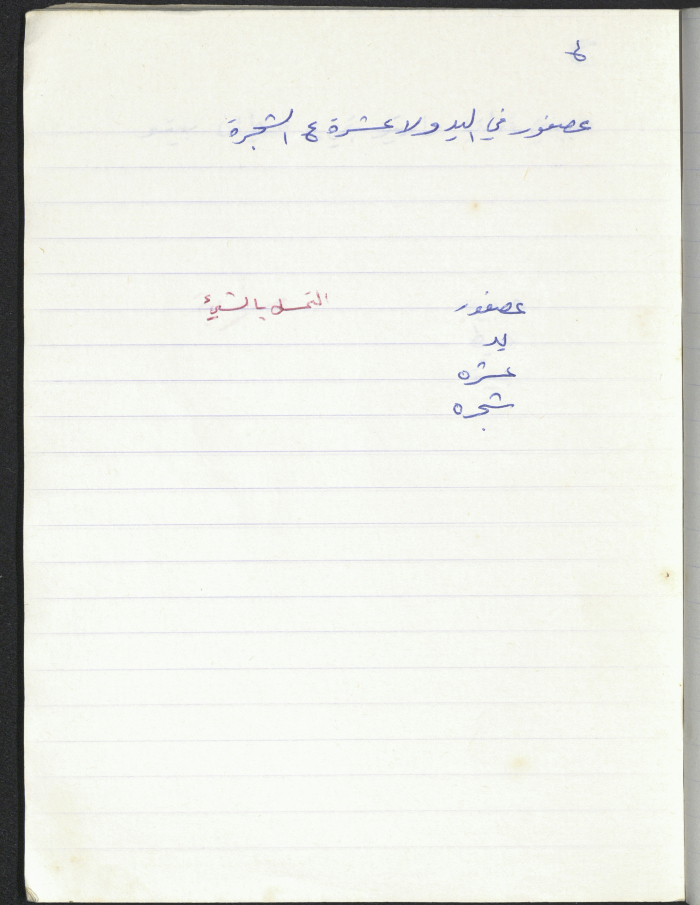 ع
عصفور في اليد ولا عشرة ع الشجرة
عصفور
التمسك بالشيء
يد
عشره
شجره